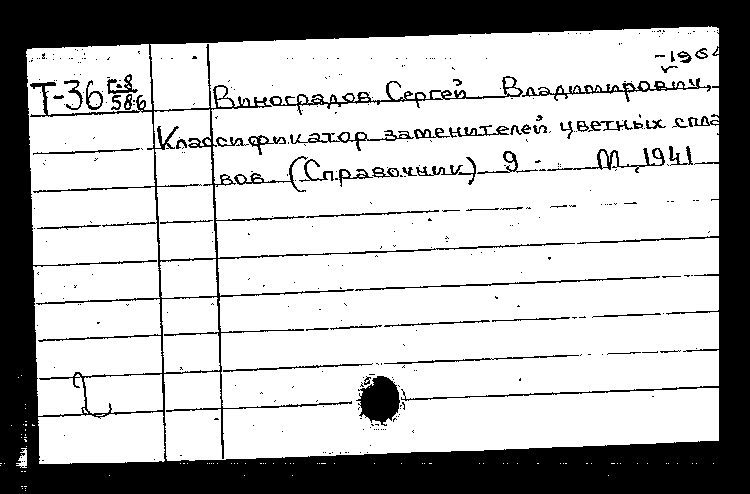 -196
Т-36 Г-8/586 Виноградов, Сергей Владимирович,
Классификатор заменителей цветных спла
вов. (Справочник) 9 - М, 1941